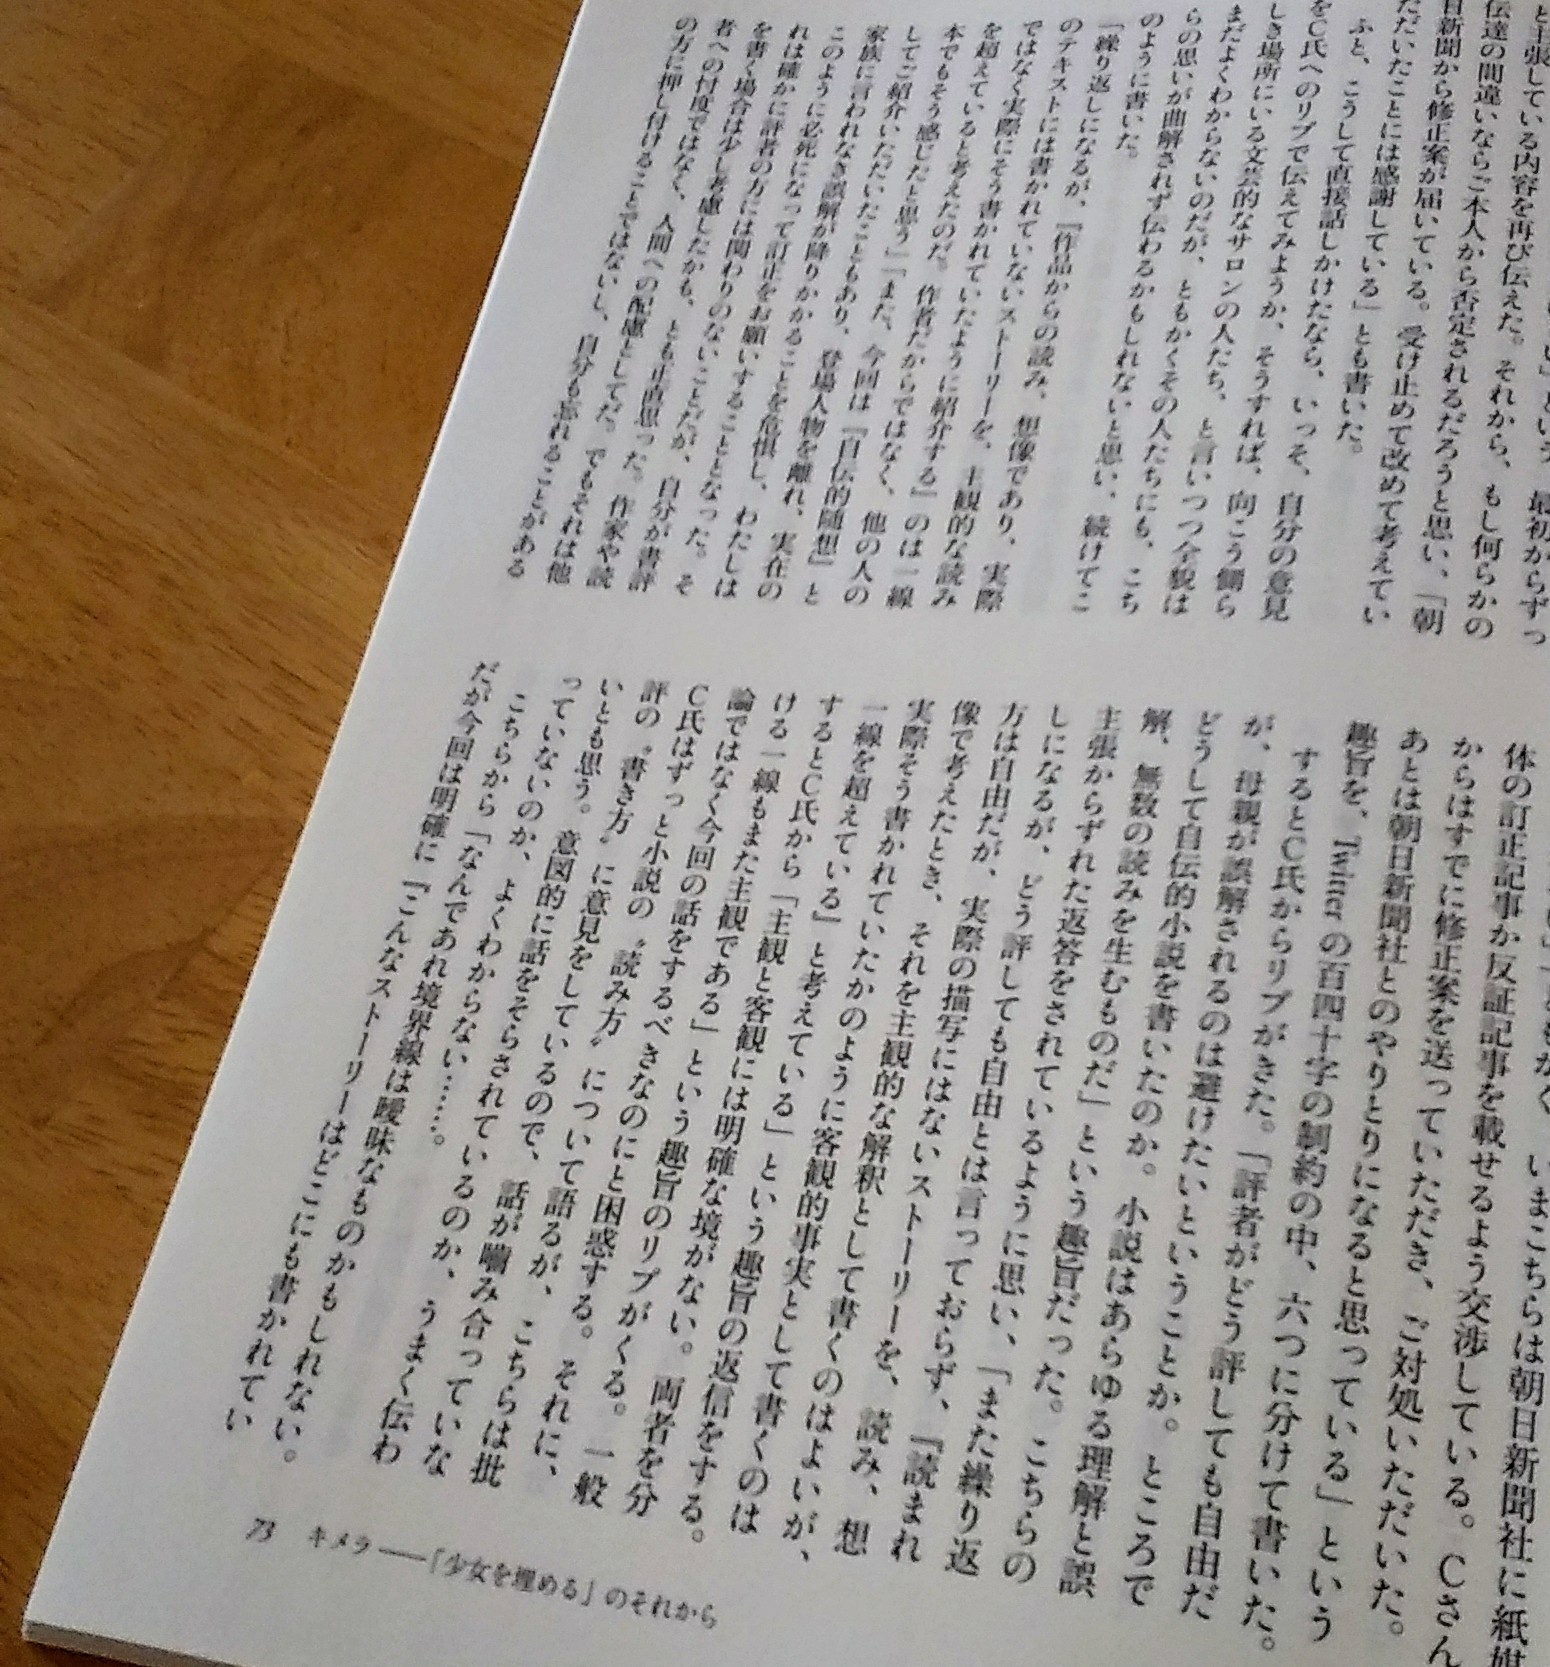 と主張している内容を再び伝えた。それから、もし何らかの
伝達の間違いならご本人から否定されるだろうと思い、「朝
日新聞から修正案が届いている。受け止めて改めて考えてい
ただいたことには感謝している」とも書いた。
ふと、こうして直接話しかけたなら、いっそ、自分の意見
をC氏へのリプで伝えてみようか、そうすれば、向こう側ら
しき場所にいる文芸的なサロンの人たち、と言いつつ全貌は
まだよくわからないのだが、ともかくその人たちにも、こち
らの思いが曲解されず伝わるかもしれないと思い、続けてこ
のように書いた。
「繰り返しになるが、『作品からの読み、想像であり、実際
のテキストには書かれていないストーリーを、主観的な読み
ではなく実際にそう書かれていたように紹介する』のは一線
を超えていると考えたのだ。作者だからではなく、他の人の
本でもそう感じたと思う」「また、今回は『自伝的随想』と
してご紹介いただいたこともあり、登場人物を離れ、実在の
家族に言われなき誤解が降りかかることを危惧し、わたしは
このように必死になって訂正をお願いすることとなった。そ
れは確かに評者の方には関わりのないことだが、自分が書評
を書く場合は少し考慮したかも、とも正直思った。作家や読
者への忖度ではなく、人間への配慮としてだ。でもそれは他
の方に押し付けることではないし、自分も忘れることがある
いまこちらは朝日新聞社に紙媒
体の訂正記事か反証記事を載せるよう交渉している。Cさん
からはすでに修正案を送っていただき、ご対処いただいた。
あとは朝日新聞社とのやりとりになると思っている」という
趣旨を、Twitterの百四十字の制約の中、六つに分けて書いた。
するとC氏からリプがきた。「評者がどう評しても自由だ
が、母親が誤解されるのは避けたいということか。ところで
どうして自伝的小説を書いたのか。小説はあらゆる理解と誤
解、無数の読みを生むものだ」という趣旨だった。こちらの
主張からずれた返答をされているように思い、「また繰り返
しになるが、どう評しても自由とは言っておらず、『読まれ
方は自由だが、実際の描写にはないストーリーを、読み、想
像で考えたとき、それを主観的な解釈として書くのはよいが、
実際そう書かれていたかのように客観的事実として書くのは
一線を超えている』と考えている」という趣旨の返信をする。
するとC氏から「主観と客観には明確な境がない。両者を分
ける一線もまた主観である」という趣旨のリプがくる。一般
論ではなく今回の話をするべきなのにと困惑する。それに、
C氏はずっと小説の〝読み方〟について語るが、こちらは批
評の〝書き方〟に意見をしているので、話が嚙み合っていな
いとも思う。意図的に話をそらされているのか、うまく伝わ
っていないのか、よくわからない……。
こちらから「なんであれ境界線は曖昧なものかもしれない。
だが今回は明確に『こんなストーリーはどこにも書かれてい
73 キメラ――「少女を埋める」のそれから